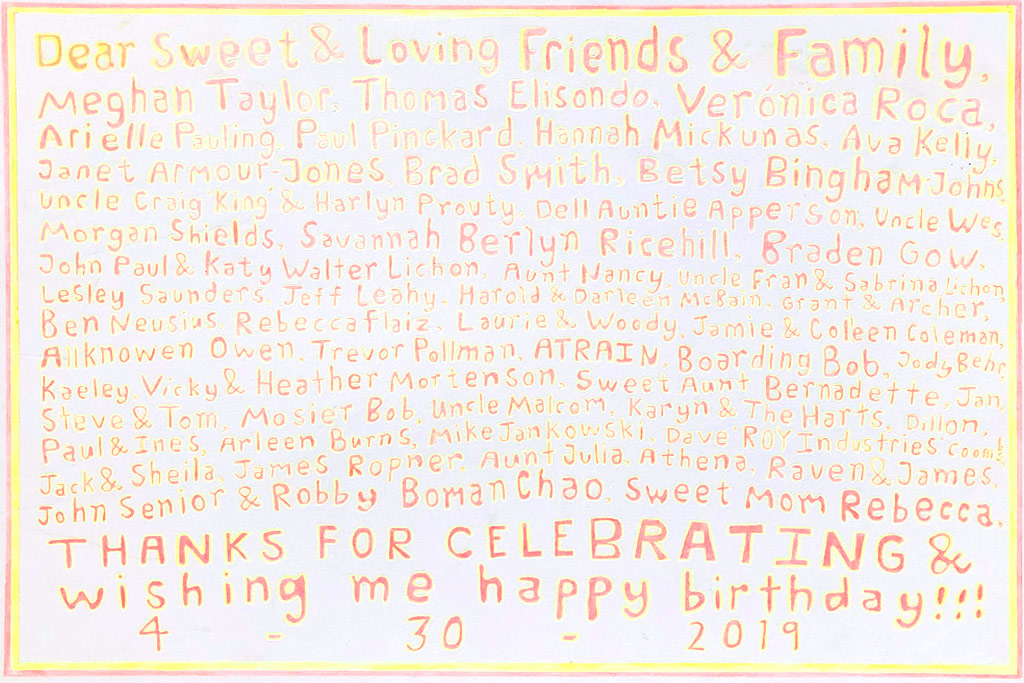 Dear Sweet & Loving Friends & Family,
Meghan Taylor, Thomas Elisondo, Verónica Roca,
Arielle Pauling, Paul Pinckard, Hannah Mickunas, Ava Kelly,
Janet Armour-Jones, Brad Smith, Betsy Bingham-Johns,
Uncle Craig King & Harlyn Prouty, Dell Auntie Apperson, Uncle Wes,
Morgan Shields, Savannah Berlyn Ricehill, Braden Gow,
John Paul & Katy Walter Lichon, Aunt Nancy, Uncle Fran & Sabrina Lichon,
Lesley Saunders, Jeff Leahy, Harold & Darleen McBain, Grant & Archer,
Ben Neusius, Rebeccaflaiz, Laurie & Woody, Jamie & Colleen Coleman,
Allknowen Owen, Trevor Pollman, ATRAIN, Boarding Bob, Jody Behr,
Kaeley, Vicky & Heather Mortenson, Sweet Aunt Bernadette, Jan,
Steve & Tom, Mosier Bob, Uncle Malcom, Karyn & The Harts, Dillon,
Paul & Ines, Arleen Burns, Mike Jankowski, Dave "ROY Industries"
Jack & Sheila, James Ropner, Aunt Julia, Athena, Raven & James,
John Senior & Robby Boman Chao, Sweet Mom Rebecca,
THANKS FOR CELEBRATING &
wishing me happy birthday!!!
4 - 30 - 2019